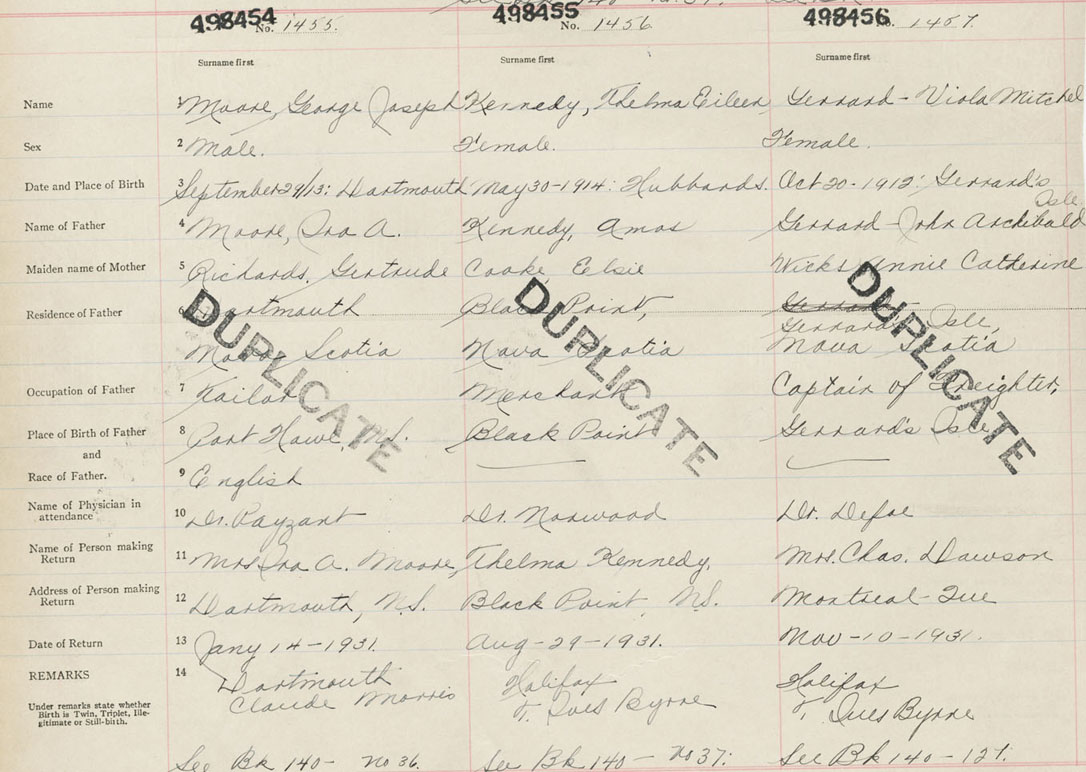 498454 498455 498456
No. 1455. No. 1456 No. 1457.
Surname first Surname first Surname first
Name 1 Moore, George Joseph Kennedy, Thelma Eileen Gerrard - Viola Mitchel
Sex 2 Male. Female. Female.
Date and Place of Birth 3 September 29/13: Dartmouth May 30-1914: Hubbards. Oct 20-1912: Gerrard's
Isle
Name of Father 4 Moore, Ira A. Kennedy, Amos Gerrard - John Archibald
Maiden name of Mother 5 Richards, Gertrude Cooke, Elsie Wicks Annie Catherine
Residence of Father Dartmouth Black Point, Gerrard's Isle,
Nova Scotia Nova Scotia Nova Scotia
DUPLICATE DUPLICATE DUPLICATE
Occupation of Father 7 Sailor Merchant Captain of Freighter,
Place of Birth of Father 8 Port Howe, Black Point Gerrard's Isle
and
Race of Father. 9 English
Name of Physician in
attendance 10 Dr. Payzant Dr. Norwood Dr. Defoe
Name of Person making
Return 11 Mrs Ira A. Moore, Thelma Kennedy, Mrs. Chas. Dawson
Address of Person making
Return 12 Dartmouth, N.S. Black Point, N.S. Montreal - Que
Date of Return 13 Jany 14-1931. Aug-29-1931. Nov-10-1931.
REMARKS 14 Dartmouth Halifax Halifax
Under remarks state whether
Birth is Twin, Triplet, Ille-
gitimate or Still-birth.
Claude Morris T. Ives Byrne T. Ives Byrne
See Bk 140- No 36. See Bk 140- No 37. See Bk 140-127.